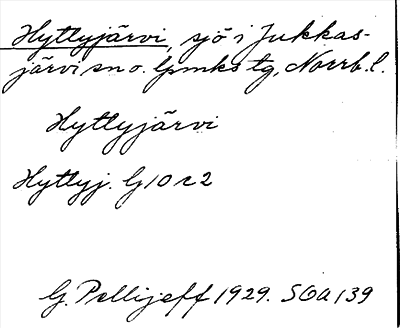 Hyttyjärvi, sjö i Jukkas-
järvi sn o. lpmks tg, Norrb. l.
Hyttyjärvi
Hyttyj. G10r2
G. Pellijeff 1929. SOA 139